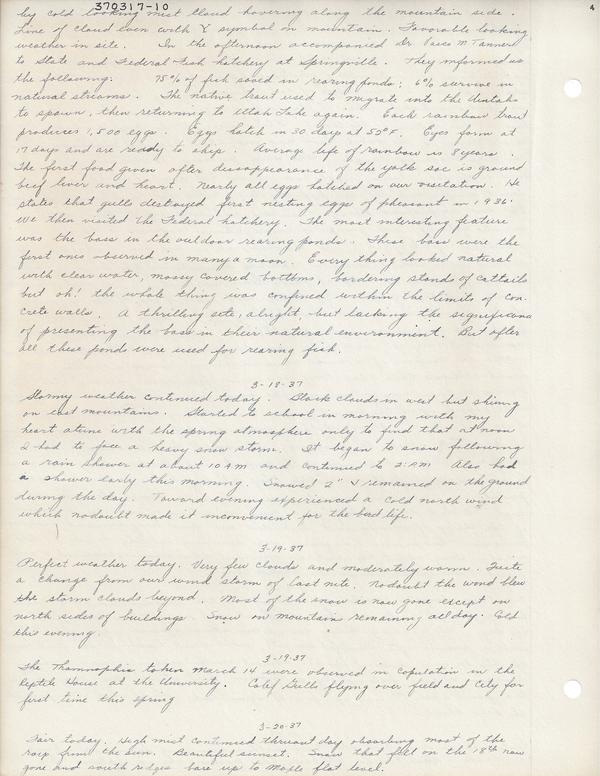 370317-10
4
by cold looking mist cloud hovering along the mountain side.
Line of cloud even with Y symbol on mountain. Favorable looking
weather in site. In the afternoon accompanied Dr Vasco M. Tanner
to State and Federal Fish hatchery at Springville. They informed us
the following: 75% of fish saved in rearing ponds; 6% survive in
natural streams. The native trout used to migrate into the Uintahs
to spawn, then returning to Utah Lake again. Each rainbow trout
produces 1,500 eggs. Eggs hatch in 30 days at 50°F. Eyes form at
17 days and are ready to ship. Average life of rainbow is 8 years.
The first food given after dissappearance of the yolk sac is ground
beef liver and heart. Nearly all eggs hatched on our visitation. He
states that gulls destroyed first nesting eggs of pheasant in 1936.
We then visited the Federal hatchery. The most interesting feature
was the bass in the outdoor rearing ponds. These bass were the
first ones observed in many a moon. Everything looked natural
with clear water, mossy covered bottoms, bordering stands of cattails
but oh! the whole thing was confined within the limits of con-
crete walls. A thrilling site, alright, but lacking the significance
of presenting the bass in their natural environment. But after
all these ponds were used for rearing fish.
3-18-37
Stormy weather continued today. Stark clouds in west but shining
on east mountains. Started to school in morning with my
heart atune with the spring atmosphere only to find that at noon
I had to face a heavy snow storm. It began to snow following
a rain shower at about 10 AM and continued to 2 PM Also had
a shower early this morning. Snowed 2" & remained on the ground
during the day. Toward evening experienced a cold north wind
which nodoubt made it inconvenient for the bird life.
3-19-37
Perfect weather today. Very few clouds and moderately warm. Quite
a change from our wind storm of last nite. Nodoubt the wind blew
the storm clouds beyond. Most of the snow is now gone except on
north sides of buildings. Snow on mountain remaining all day. Cold
this evening.
3-19-37
The Thamnophis taken March 14 were observed in copulation in the
Reptile House at the University. Calif Gulls flying over field and City for
first time this spring
3-20-37
Fair today. High mist continued thruout day absorbing most of the
rays from the sun. Beautiful sunset. Snow that fell on the 18th now
gone and south ridges bare up to Maple flat level.